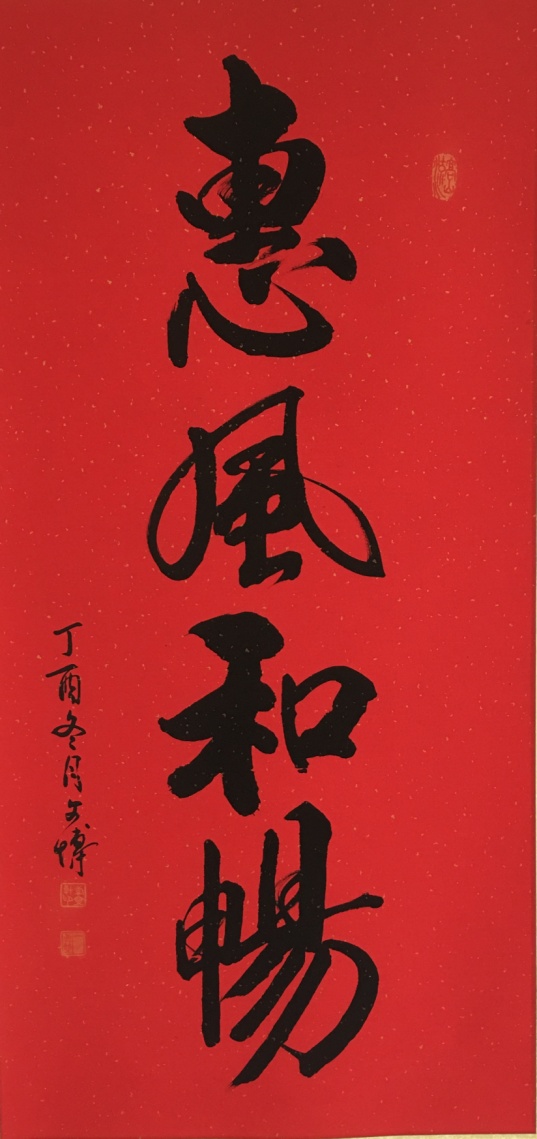 惠風和暢
丁酉冬月文博